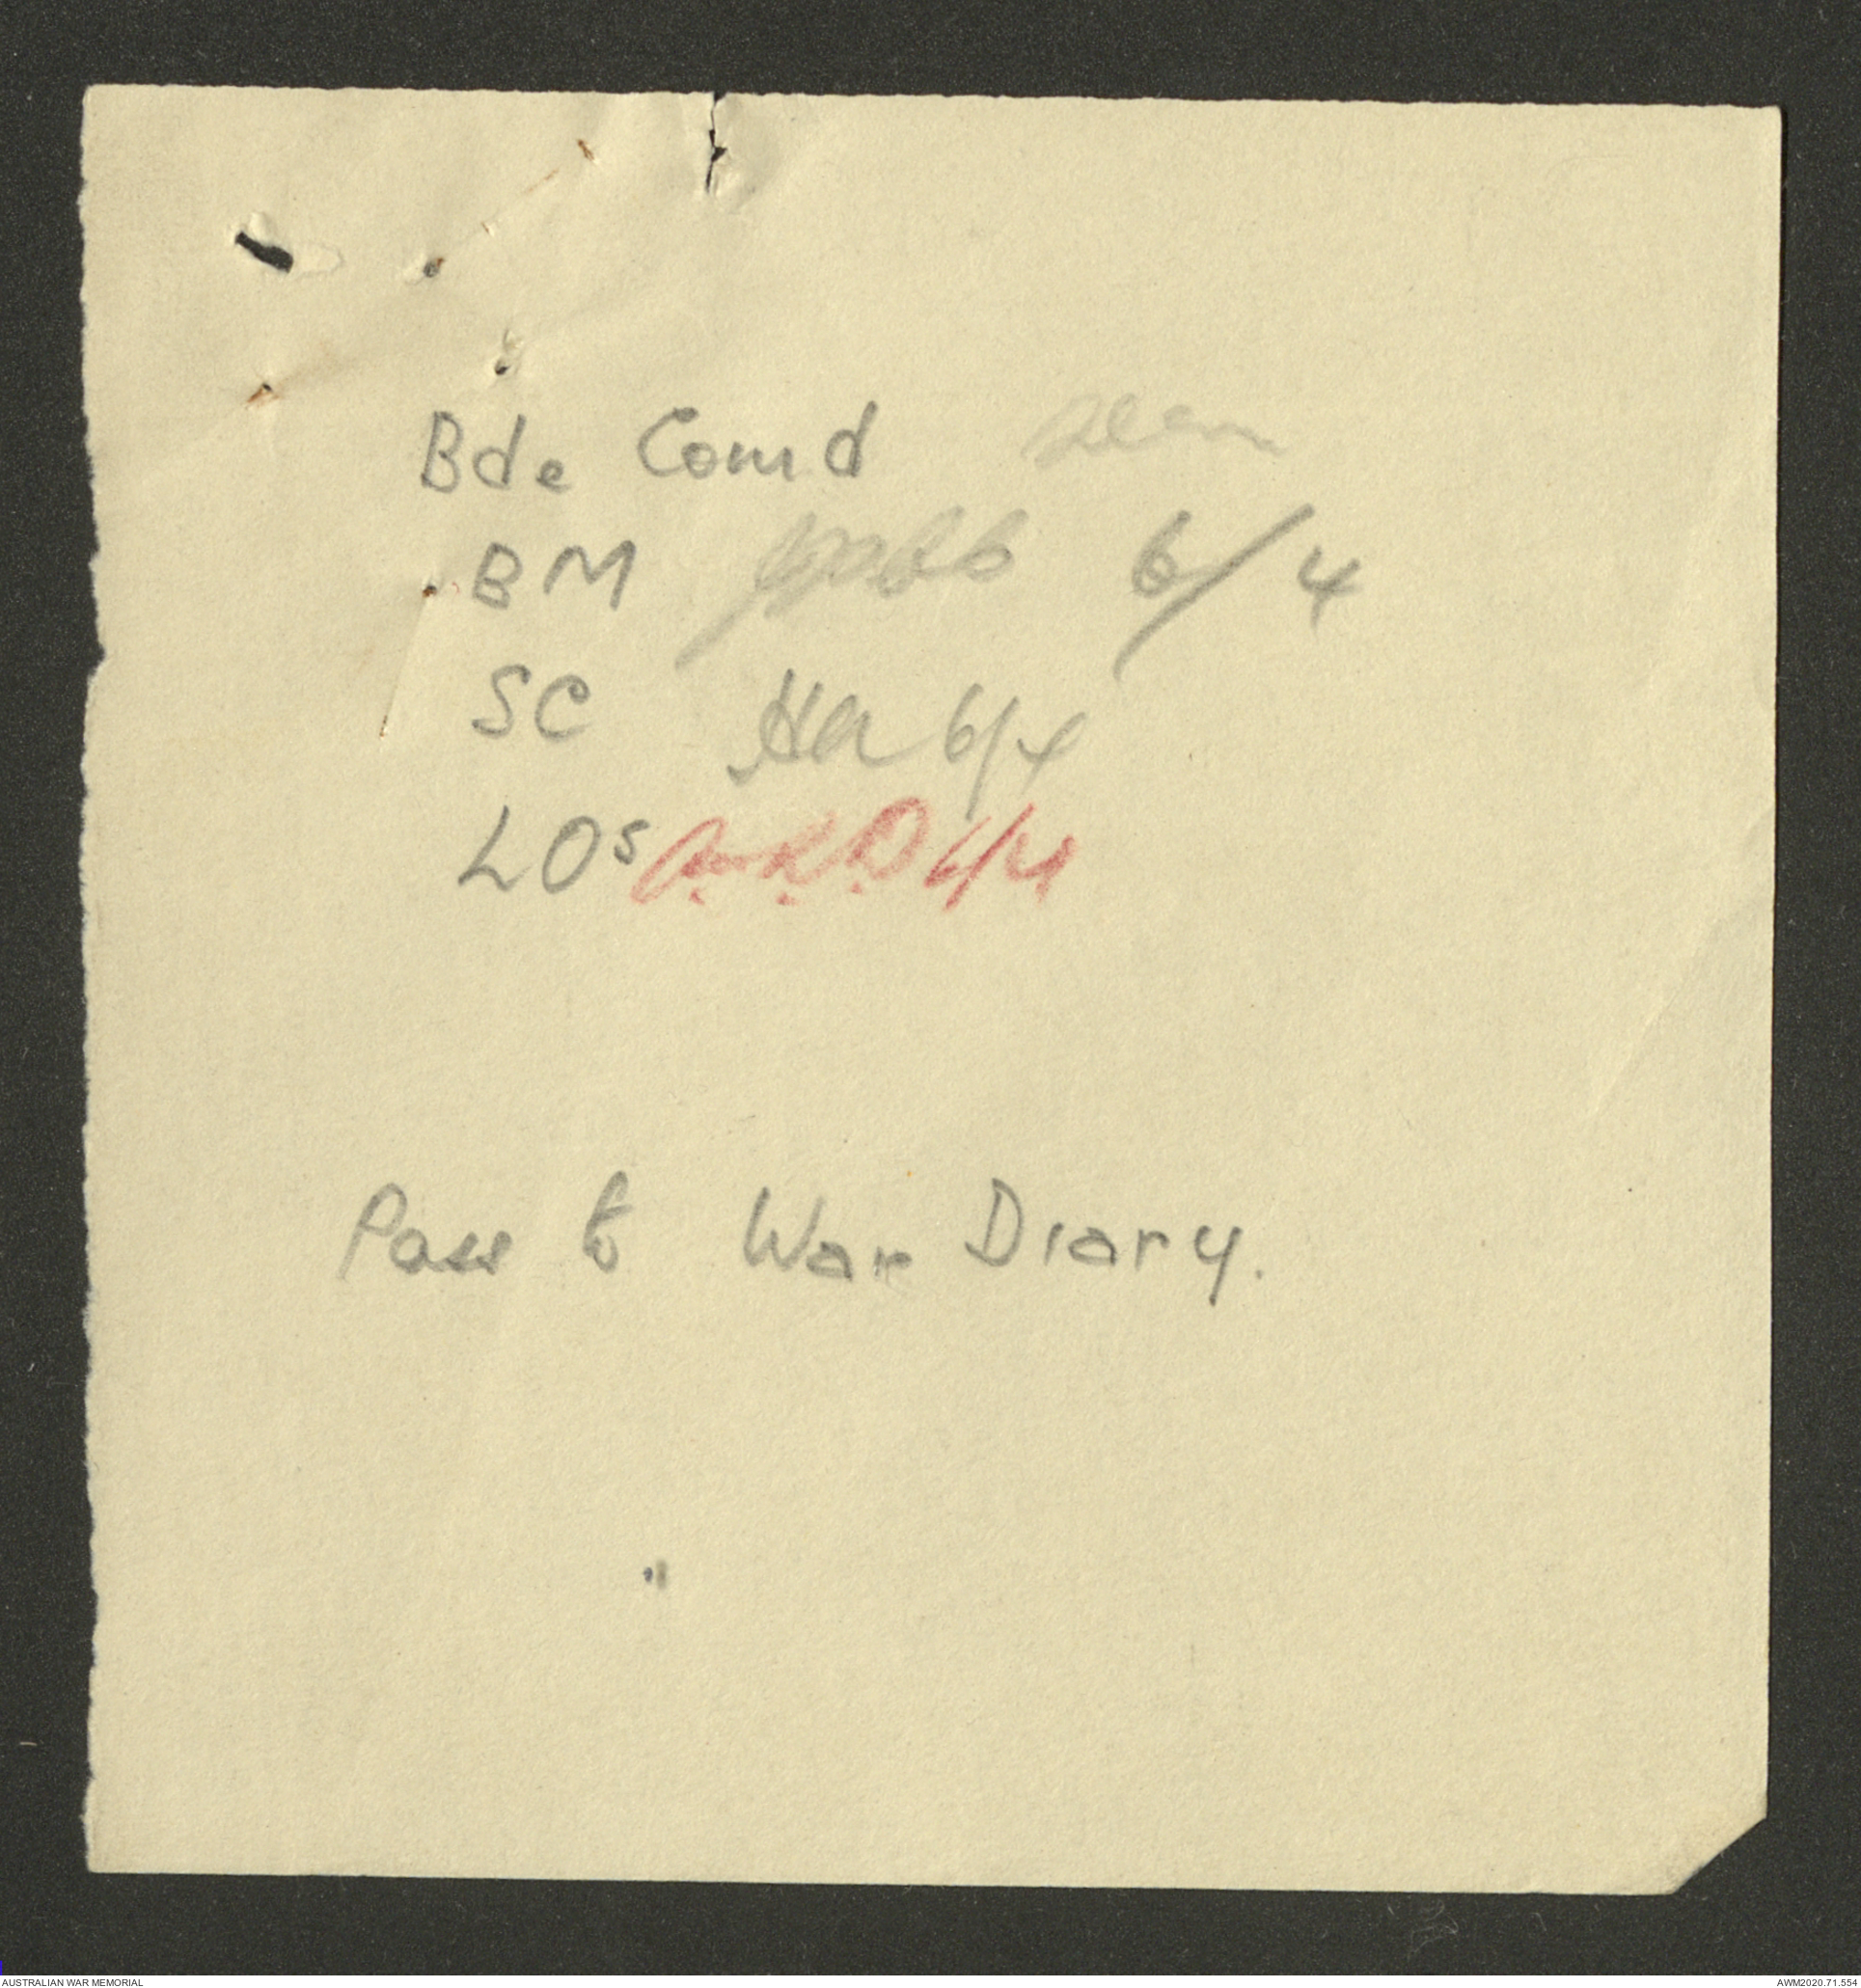 Bde Comd seen
BM 6/4
SC HA 6/4
LOs 6/4
Pass to War Diary.
AUSTRALIAN WAR MEMORIAL AWM2020.71.554